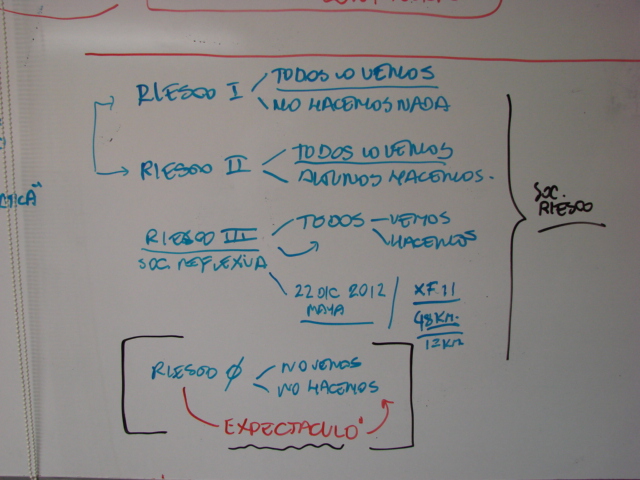 RIESGO I TODOS LO VEMOS
NO HACEMOS NADA
RIESGO II TODOS LO VEMOS
ALGUNOS HACEMOS.
RIESGO III TODOS VEMOS
HACEMOS
SOC. REFLEXIVA
22 DIC 2012 / XF.11
MAYA 48 KM.
12 KM
RIESGO Ø NO VEMOS
NO HACEMOS
EXPECTACULO
SOC.
RIESGO
CTICA"